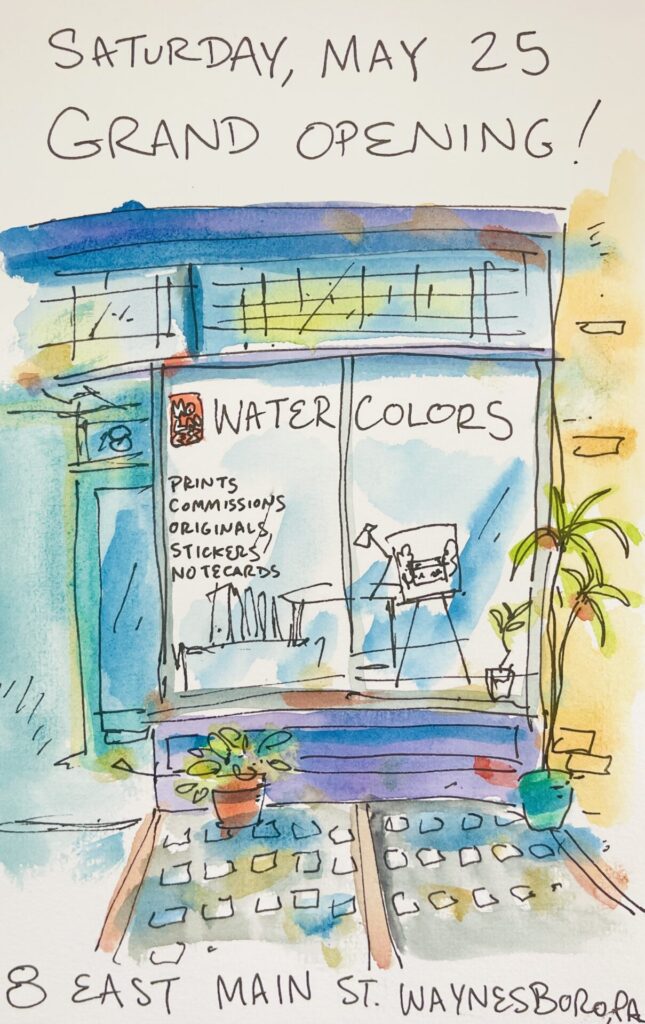 SATURDAY, MAY 25
GRAND OPENING!
8
WATER COLORS
PRINTS
COMMISSIONS
ORIGINALS
STICKERS
NOTECARDS
8 EAST MAIN ST. WAYNESBORO, PA